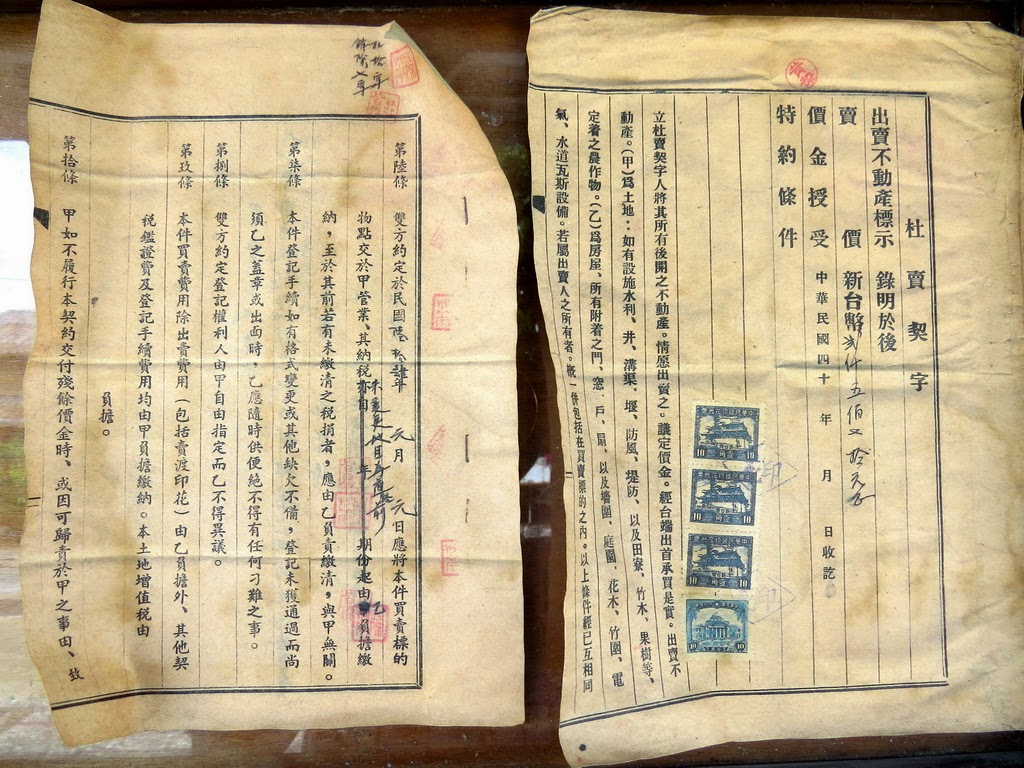 杜賣契字
出賣不動產標示 錄明於後
賣價 新台幣貳仟五佰
價金授受 中華民國四十 年 月 日收訖
特約條件
立杜賣契字人將其所有後開之不動產。情愿出賣之。議定價金。經台端出首承買是實。出賣不
動產。(甲)爲土地：如有設施水利、井、溝渠、堰、防風、堤防、以及田寮、竹木、果樹等、
定着之農作物。(乙)爲房屋、所有附着之門、窓、戶、扇、以及墻圍、庭園、花木、竹圍、電
氣、水道瓦斯設備。若屬出賣人之所有者。概一併包括在買賣標的之內。以上條件經已互相同
10
10
10
10
第陸條 雙方約定於民國 年元月元日應將本件買賣標的
物點交於甲管業、其納稅 年 期份起由 負擔繳
納，至於其前若有未繳清之稅捐者，應由乙負責繳清，與甲無關。
第柒條 本件登記手續如有格式變更或其他缺欠不備，登記未獲通過而尚
須乙之蓋章或出面時，乙應隨時供便絕不得有任何刁難之事。
第捌條 雙方約定登記權利人由甲自由指定而乙不得異議。
第玖條 本件買賣費用除出賣費用（包括賣渡印花）由乙負擔外、其他契
稅鑑證費及登記手續費用均由甲負擔繳納。本土地增值稅由
負擔。
第拾條 甲如不履行本契約交付殘餘價金時、或因可歸責於甲之事由、致